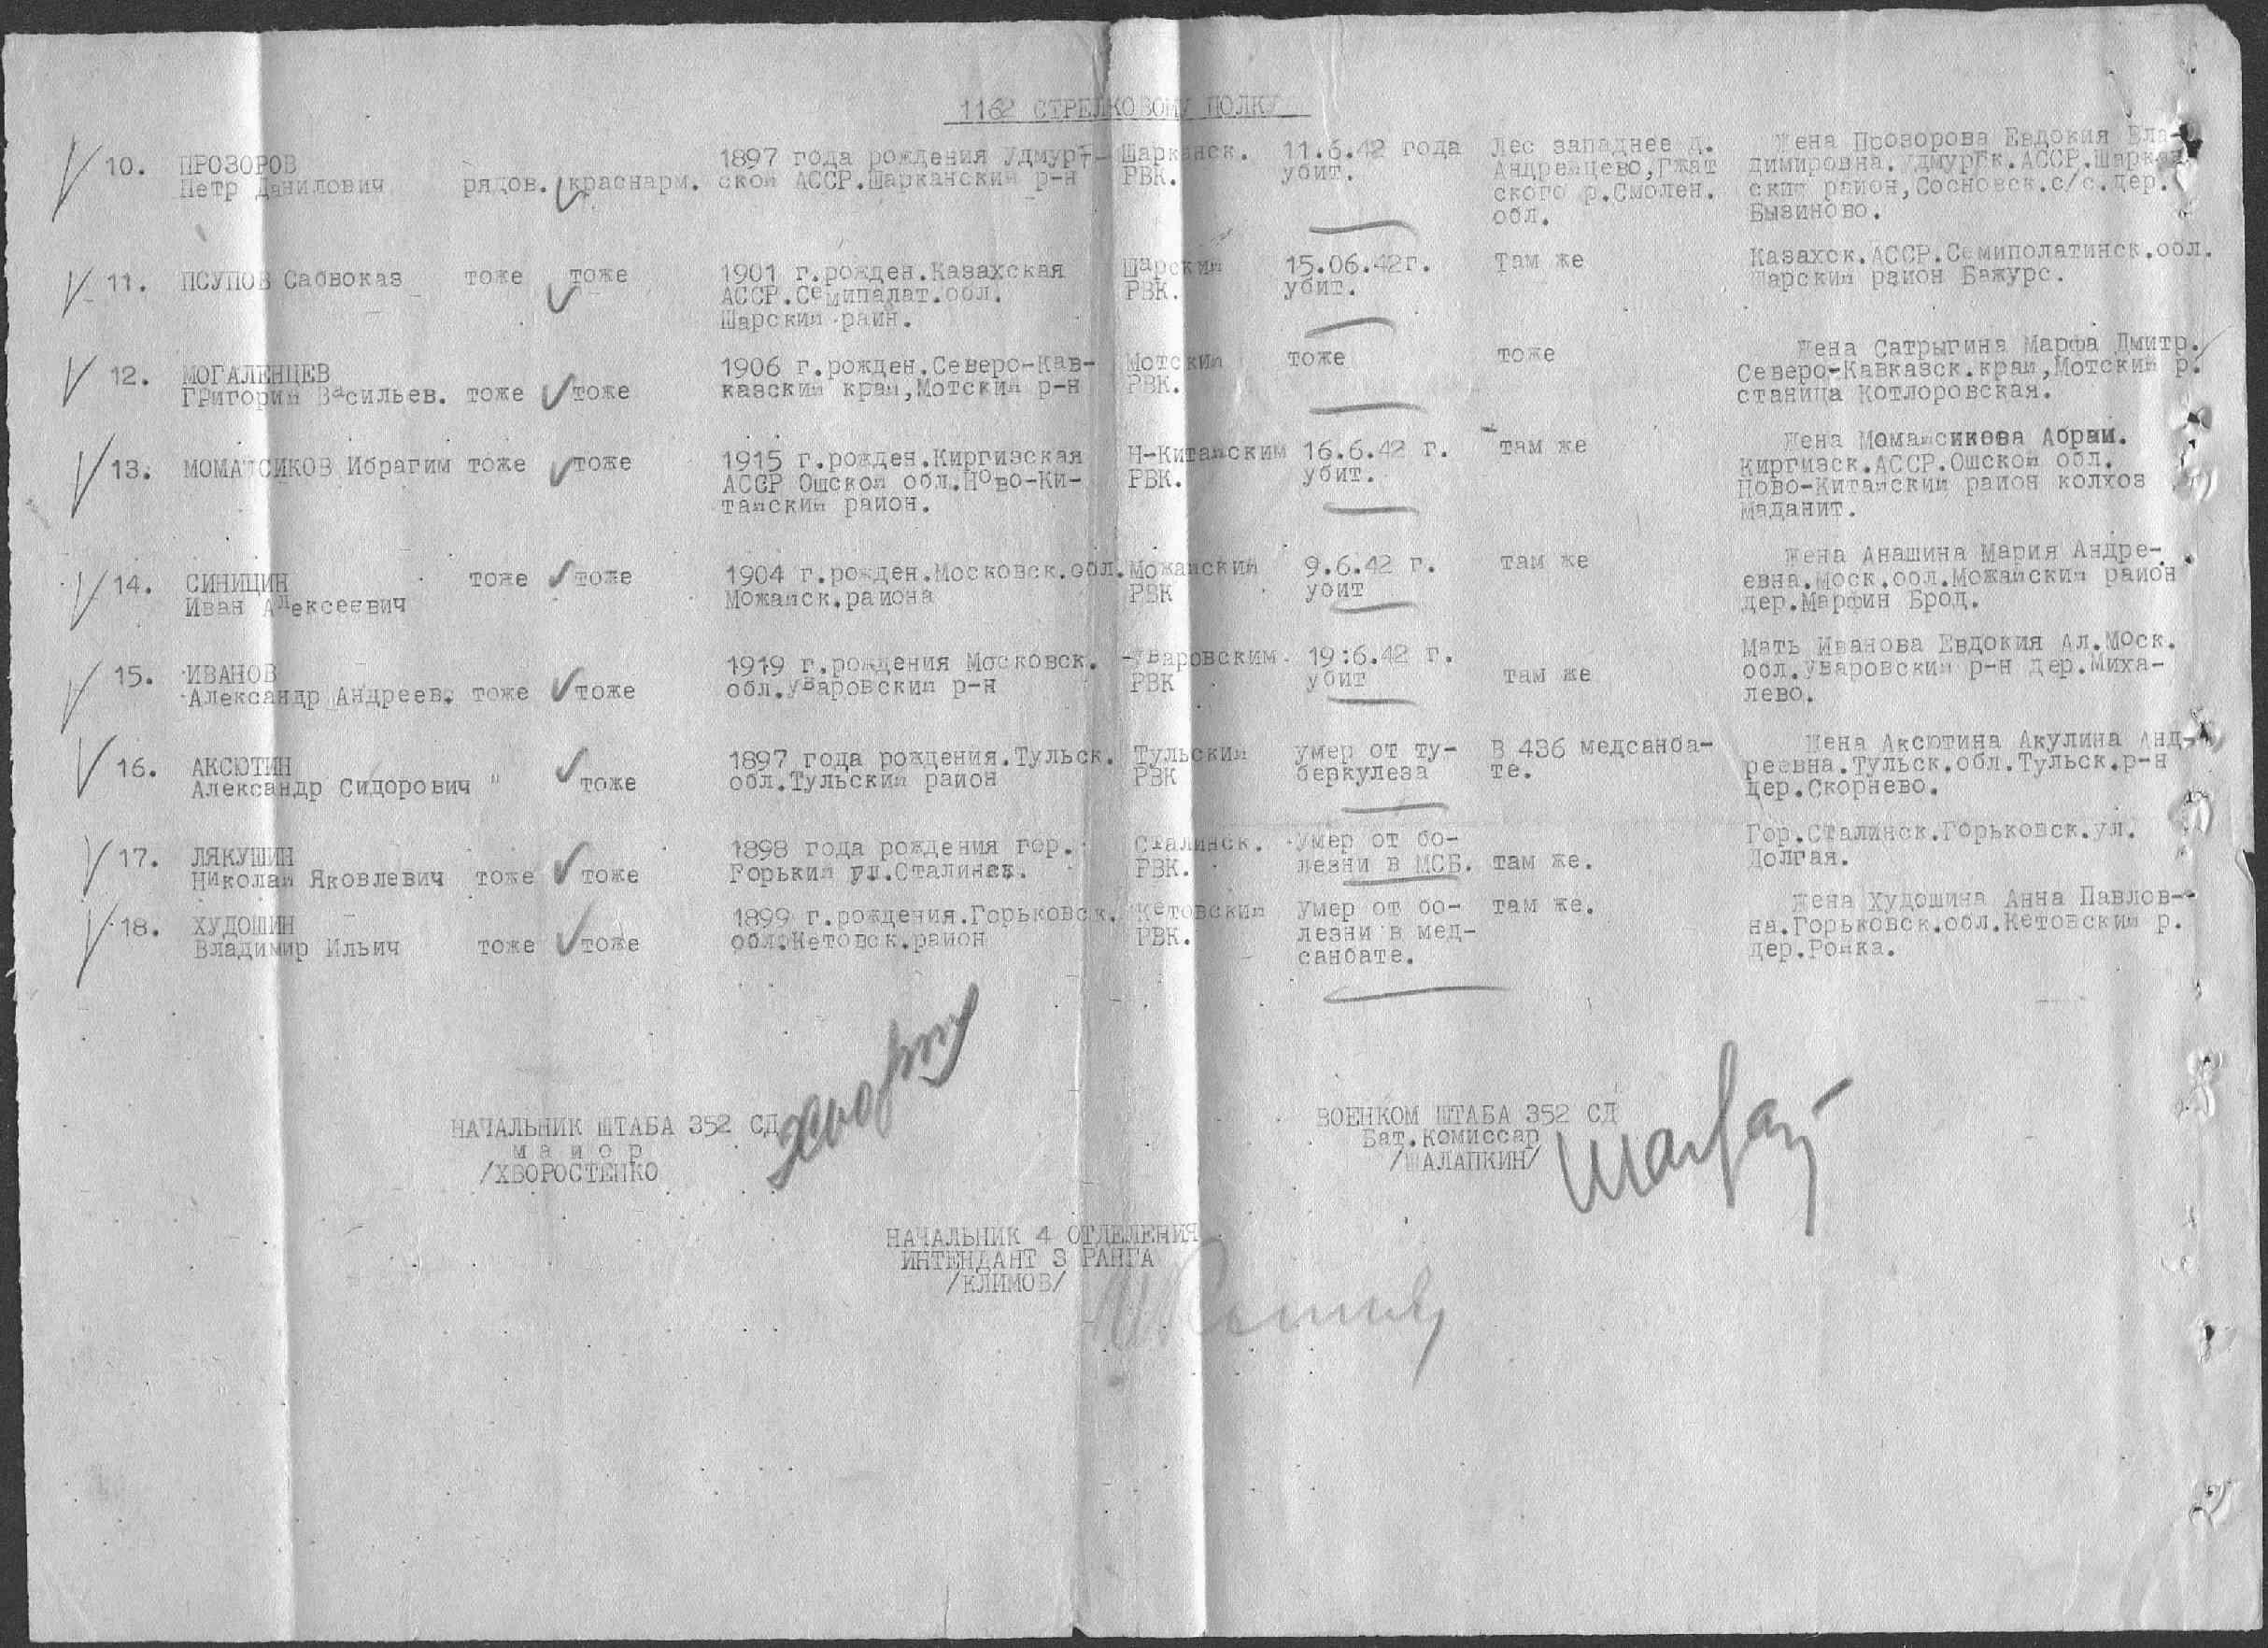 1162 СТРЕЛКОВОМУ ПОЛКУ
10. ПРОЗОРОВ
Петр Данилович рядов. краснарм.
1897 года рождения Удмурт-
ской АССР.Шарканский р-н
Шарканск.
РВК.
11.6.42 года
убит.
Лес западнее д.
Андрейцево,Гжат
ского р.Смолен.
обл.
Жена Прозорова Евдокия Вла-
димировна.Удмуртск.АССР.Шаркан
ский район,Сосновск.с/с.дер.
Бызиново.
11. ПСУПОВ Садвоказ тоже тоже
1901 г.рожден.Казахская
АССР.Семипалат.обл.
Шарский райн.
Шарский
РВК.
15.06.42г.
убит.
Там же
Казахск.АССР.Семиполатинск.обл.
Шарский район Бажурс.
12. МОГАЛЕНЦЕВ
Григорий Васильев. тоже тоже
1906 г.рожден.Северо-Кав-
казский край,Мотский р-н
Мотский
РВК.
тоже
тоже
Жена Сатрыгина Марфа Дмитр.
Северо-Кавказск.край,Мотский р.
станица Котлоровская.
13. МОМАТСИКОВ Ибрагим тоже тоже
1915 г.рожден.Киргизская
АССР Ошской обл.Ново-Ки-
тайский район.
Н-Китайским
РВК.
16.6.42 г.
убит.
там же
Жена Момайсикова Абраи.
Киргизск.АССР.Ошской обл.
Ново-Китайский район колхоз
Маданит.
14. СИНИЦИН тоже тоже
Иван Алексеевич
1904 г.рожден.Московск.обл.
Можайск.района
Можайский
РВК
9.6.42 г.
убит
там же
Жена Анашина Мария Андре-
евна.Моск.обл.Можайский район
дер.Марфин Брод.
15. ИВАНОВ
Александр Андреев. тоже тоже
1919 г.рождения Московск.
обл.Уваровский р-н
Уваровским.
РВК
19:6.42 г.
убит
там же
Мать Иванова Евдокия Ал.Моск.
обл.Уваровский р-н дер.Миха-
лево.
16. АКСЮТИН
Александр Сидорович " тоже
1897 года рождения.Тульск.
обл.Тульский район
Тульский
РВК
умер от ту-
беркулеза
В 436 медсанба-
те.
Жена Аксютина Акулина Анд-
реевна.Тульск.обл.Тульск.р-н
дер.Скорнево.
17. ЛЯКУШИН
Николай Яковлевич тоже тоже
1898 года рождения гор.
Горький ул.Сталинск.
Сталинск.
РВК.
Умер от бо-
лезни в МСБ.
там же.
Гор.Сталинск.Горьковск.ул.
Долгая.
18. ХУДОШИН
Владимир Ильич тоже тоже
1899 г.рождения.Горьковск.
обл.Кетовск.район
Кетовский
РВК.
Умер от бо-
лезни в мед-
санбате.
там же.
Жена Худошина Анна Павлов-
на.Горьковск.обл.Кетовский р.
дер.Ройка.
НАЧАЛЬНИК ШТАБА 352 СД
майор
/ХВОРОСТЕНКО
ВОЕНКОМ ШТАБА 352 СД
Бат.Комиссар
/ШАЛАПКИН/
НАЧАЛЬНИК 4 ОТДЕЛЕНИЯ
ИНТЕНДАНТ 3 РАНГА
/КЛИМОВ/